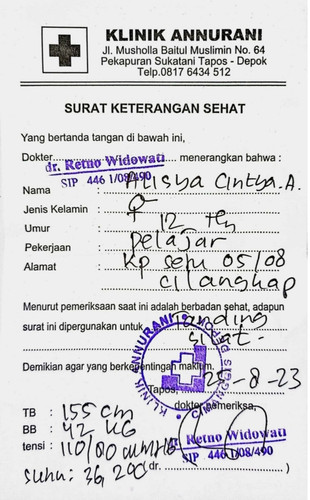 KLINIK ANNURANI
Jl. Musholla Baitul Muslimin No. 64
Pekapuran Sukatani Tapos - Depok
Telp.0817 6434 512
SURAT KETERANGAN SEHAT
Yang bertanda tangan di bawah ini,
Dokter dr. Retno Widowati menerangkan bahwa :
SIP 446 1/08/490
Nama : Alisya Cintya.A.
Jenis Kelamin : ♀
Umur : 12 th
Pekerjaan : pelajar
Alamat : Kp 05/08
cilangkap
Menurut pemeriksaan saat ini adalah berbadan sehat, adapun
surat ini dipergunakan untuk Tanding
silat -
Demikian agar yang berkepentingan maklum.
Tapos, 25-8-23
dokter pemeriksa,
KLINIK ANNURANI
TB : 155 cm
BB : 42 KG
tensi : 110/80 mmHg
suhu: 36,2°C
dr. Retno Widowati
SIP 446 1/08/490
(dr. )